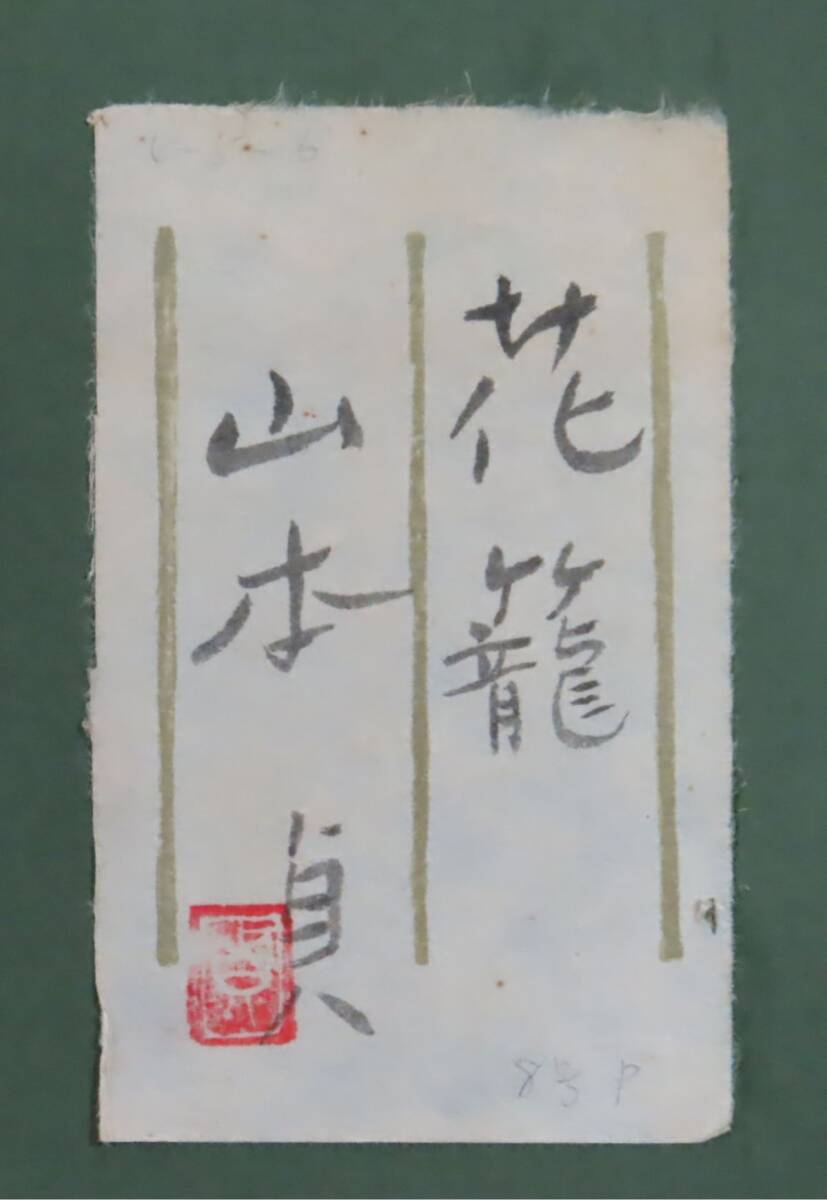 花籠
山本貞
8号P